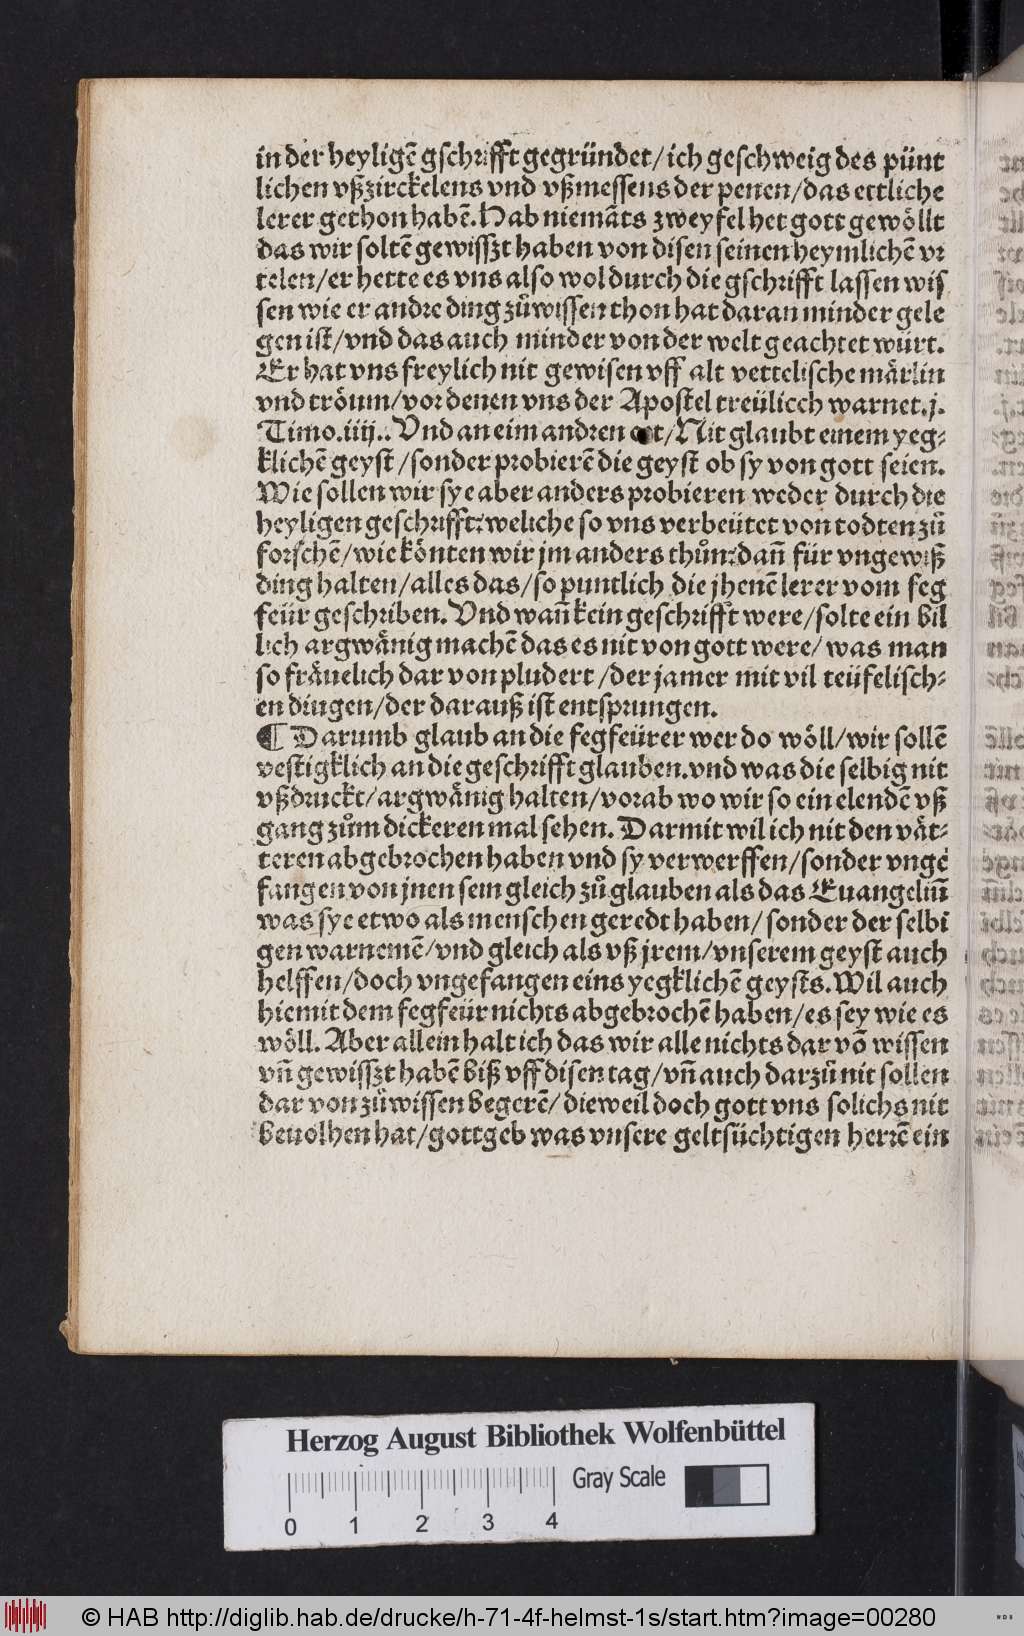 in der heyligē gschrifft gegründet/ ich geschweig des pünt
lichen vßzirckelens vnd vßmessens der penen/ das ettliche
lerer gethon habē. Hab niemāts zweyfel het gott gewöllt
das wir soltē gewisszt haben von disen seinen heymlichē vr
telen/ er hette es vns also wol durch die gschrifft lassen wis
sen wie er andre ding zůwissen thon hat daran minder gele
gen ist/ vnd das auch minder von der welt geachtet würt.
Er hat vns freylich nit gewisen vff alt vettelische märlin
vnd tröum/ vor denen vns der Apostel treülicch warnet. j.
Timo. iiij.. Vnd an eim andren ort/ Nit glaubt einem yeg⸗
klichē geyst/ sonder probierē die geyst ob sy von gott seien.
Wie sollen wir sye aber anders probieren weder durch die
heyligen geschrifft: weliche so vns verbeütet von todten zů
forschē/ wie könten wir jm anders thůn: dañ für vngewiß
ding halten/ alles das/ so puntlich die jhenē lerer vom feg
feür geschriben. Vnd wañ kein geschrifft were/ solte ein bil
lich argwänig machē das es nit von gott were/ was man
so fräuelich dar von pludert/ der jamer mit vil teüfelisch⸗
en dingen/ der darauß ist entsprungen.
¶ Darumb glaub an die fegfeürer wer do wöll/ wir sollē
vestigklich an die geschrifft glauben. vnd was die selbig nit
vßdruckt/ argwänig halten/ vorab wo wir so ein elendē vß
gang zům dickeren mal sehen. Darmit wil ich nit den vät⸗
teren abgebrochen haben vnd sy verwerffen/ sonder vnge
fangen von jnen sein gleich zů glauben als das Euangeliū
was sye etwo als menschen geredt haben/ sonder der selbi
gen warnemē/ vnd gleich als vß jrem/ vnserem geyst auch
helffen/ doch vngefangen eins yegklichē geysts. Wil auch
hiemit dem fegfeür nichts abgebrochē haben/ es sey wie es
wöll. Aber allein halt ich das wir alle nichts dar vō wissen
vñ gewisszt habē biß vff disen tag/ vñ auch darzů nit sollen
dar von zůwissen begerē/ dieweil doch gott vns solichs nit
beuolhen hat/ gottgeb was vnsere geltsüchtigen herrē ein
Herzog August Bibliothek Wolfenbüttel
Gray Scale
0 1 2 3 4
© HAB http://diglib.hab.de/drucke/h-71-4f-helmst-1s/start.htm?image=00280